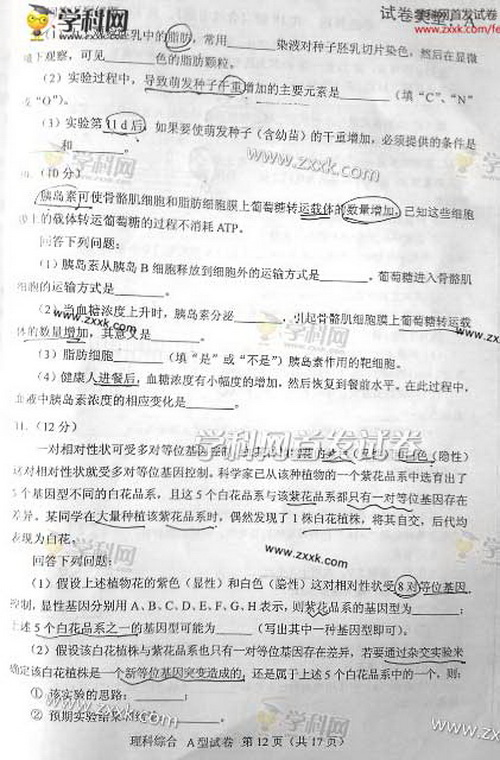 学科网
试卷类型：A
学科网首发试卷
www.zxxk.com/fe
胚乳中的脂肪，常用______染液对种子胚乳切片染色，然后在显微
镜下观察，可见______色的脂肪颗粒。
（2）实验过程中，导致萌发种子干重增加的主要元素是______（填“C”、“N”
或“O”）。
（3）实验第11 d后，如果要使萌发种子（含幼苗）的干重增加，必须提供的条件是
______和______。
学科网
www.zxxk.com
（10分）
胰岛素可使骨骼肌细胞和脂肪细胞膜上葡萄糖转运载体的数量增加，已知这些细胞
膜上的载体转运葡萄糖的过程不消耗ATP。
回答下列问题：
（1）胰岛素从胰岛B细胞释放到细胞外的运输方式是______。葡萄糖进入骨骼肌
细胞的运输方式是______。
（2）当血糖浓度上升时，胰岛素分泌______，引起骨骼肌细胞膜上葡萄糖转运载
体的数量增加，其意义是______。
www.zxxk.com
学科网
（3）脂肪细胞______（填“是”或“不是”）胰岛素作用的靶细胞。
（4）健康人进餐后，血糖浓度有小幅度的增加，然后恢复到餐前水平。在此过程中，
血液中胰岛素浓度的相应变化是______。
31.（12分）
学科网首发试卷
一对相对性状可受多对等位基因控制，（隐性）
这对相对性状就受多对等位基因控制。科学家已从该种植物的一个紫花品系中选育出了
5个基因型不同的白花品系，且这5个白花品系与该紫花品系都只有一对等位基因存在
差异。某同学在大量种植该紫花品系时，偶然发现了1株白花植株，将其自交，后代均
表现为白花。
学科网
www.zxxk.com
学科网
回答下列问题：
（1）假设上述植物花的紫色（显性）和白色（隐性）这对相对性状受8对等位基因
控制，显性基因分别用A、B、C、D、E、F、G、H表示，则紫花品系的基因型为______；
上述5个白花品系之一的基因型可能为______（写出其中一种基因型即可）。
（2）假设该白花植株与紫花品系也只有一对等位基因存在差异，若要通过杂交实验来
确定该白花植株是一个新等位基因突变造成的，还是属于上述5个白花品系中的一个，则：
① 该实验的思路：______。
② 预期实验结果
www.zxxk.com
学科网
www.zxxk.com
理科综合 A型试卷 第12页（共17页）